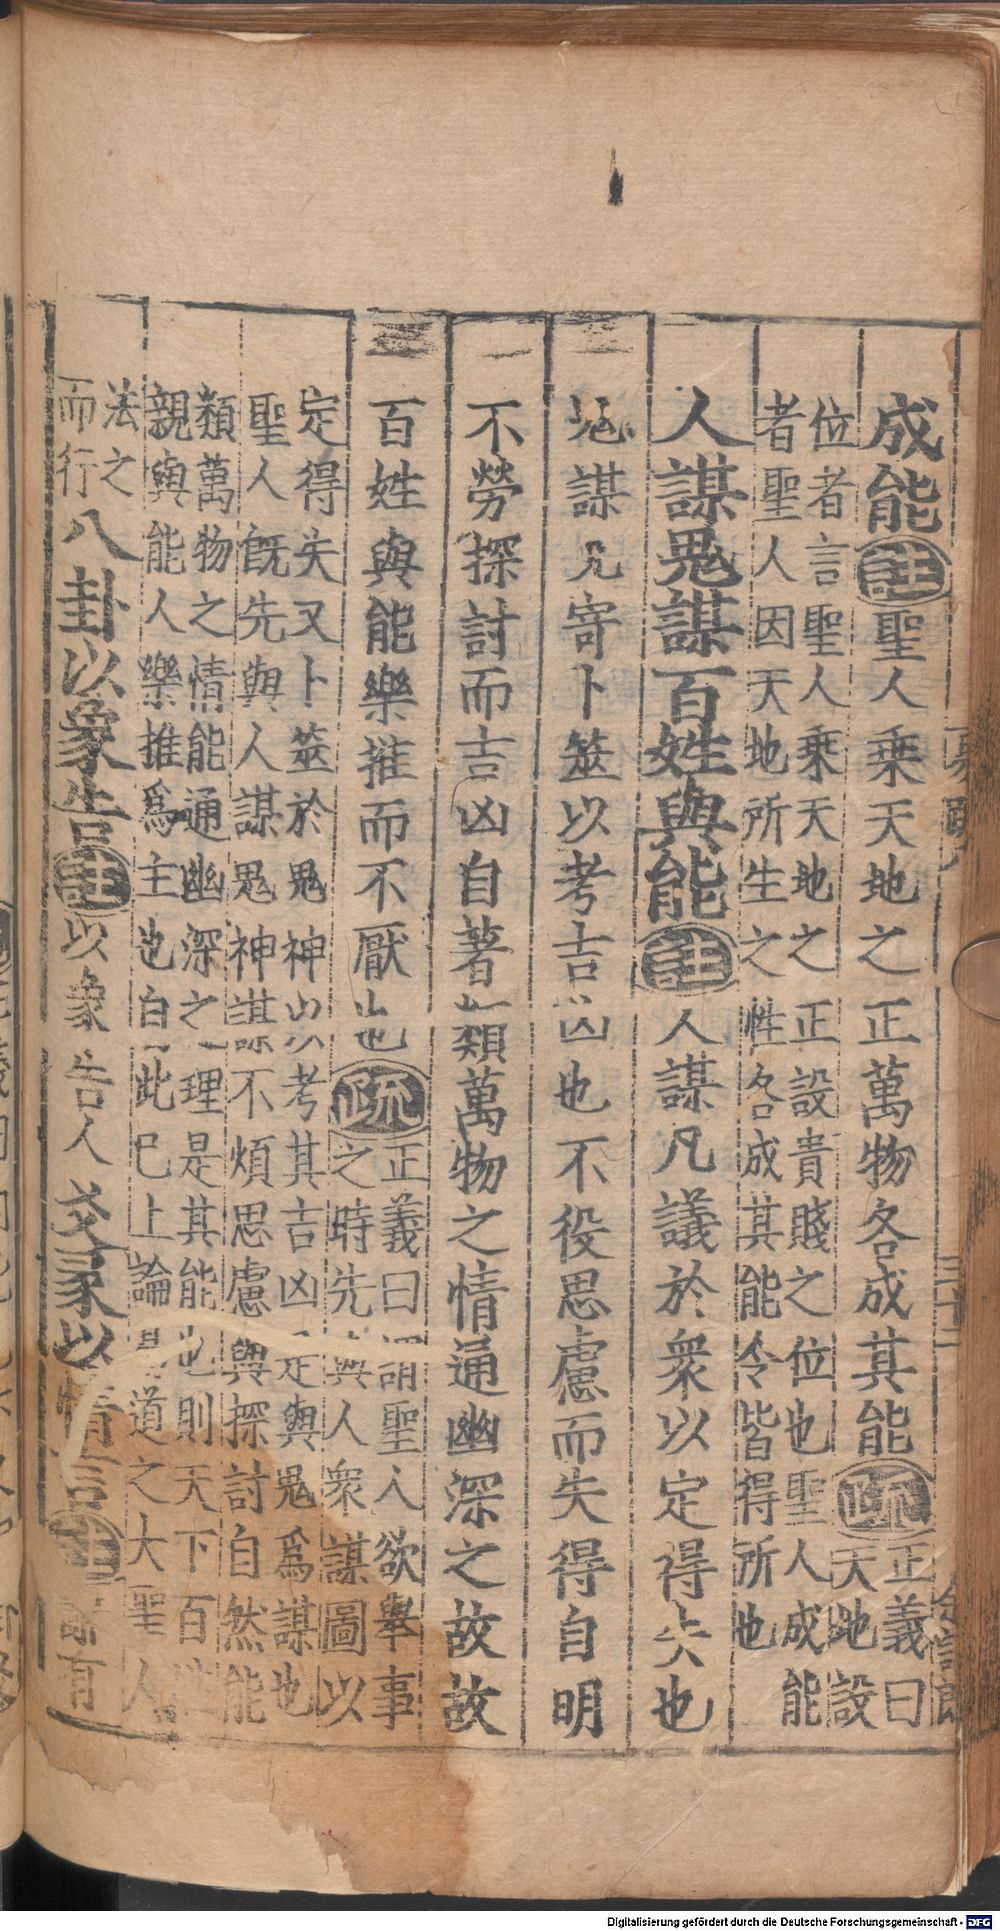 成能註聖人乘天地之正萬物各成其能疏正義曰
天地設
位者言聖人乘天地之正設貴賤之位也聖人成能
者聖人因天地所生之性各成其能令皆得所也
人謀鬼謀百姓與能註人謀凡議於衆以定得失也
鬼謀凡寄卜筮以考吉凶也不役思慮而失得自明
不勞探討而吉凶自著類萬物之情通幽深之故故
百姓與能樂推而不厭也疏正義曰謂聖人欲舉事
之時先與人衆謀圖以
定得失又卜筮於鬼神以考其吉凶是與鬼爲謀也
聖人旣先與人謀鬼神謀不煩思慮與探討自然能
類萬物之情能通幽深之理是其能也則天下百姓
親與能人樂推爲主也自此已上論易道之大聖人
法之
而行八卦以象告註以象告人爻彖以情言註辭有
Digitalisierung gefördert durch die Deutsche Forschungsgemeinschaft - DFG